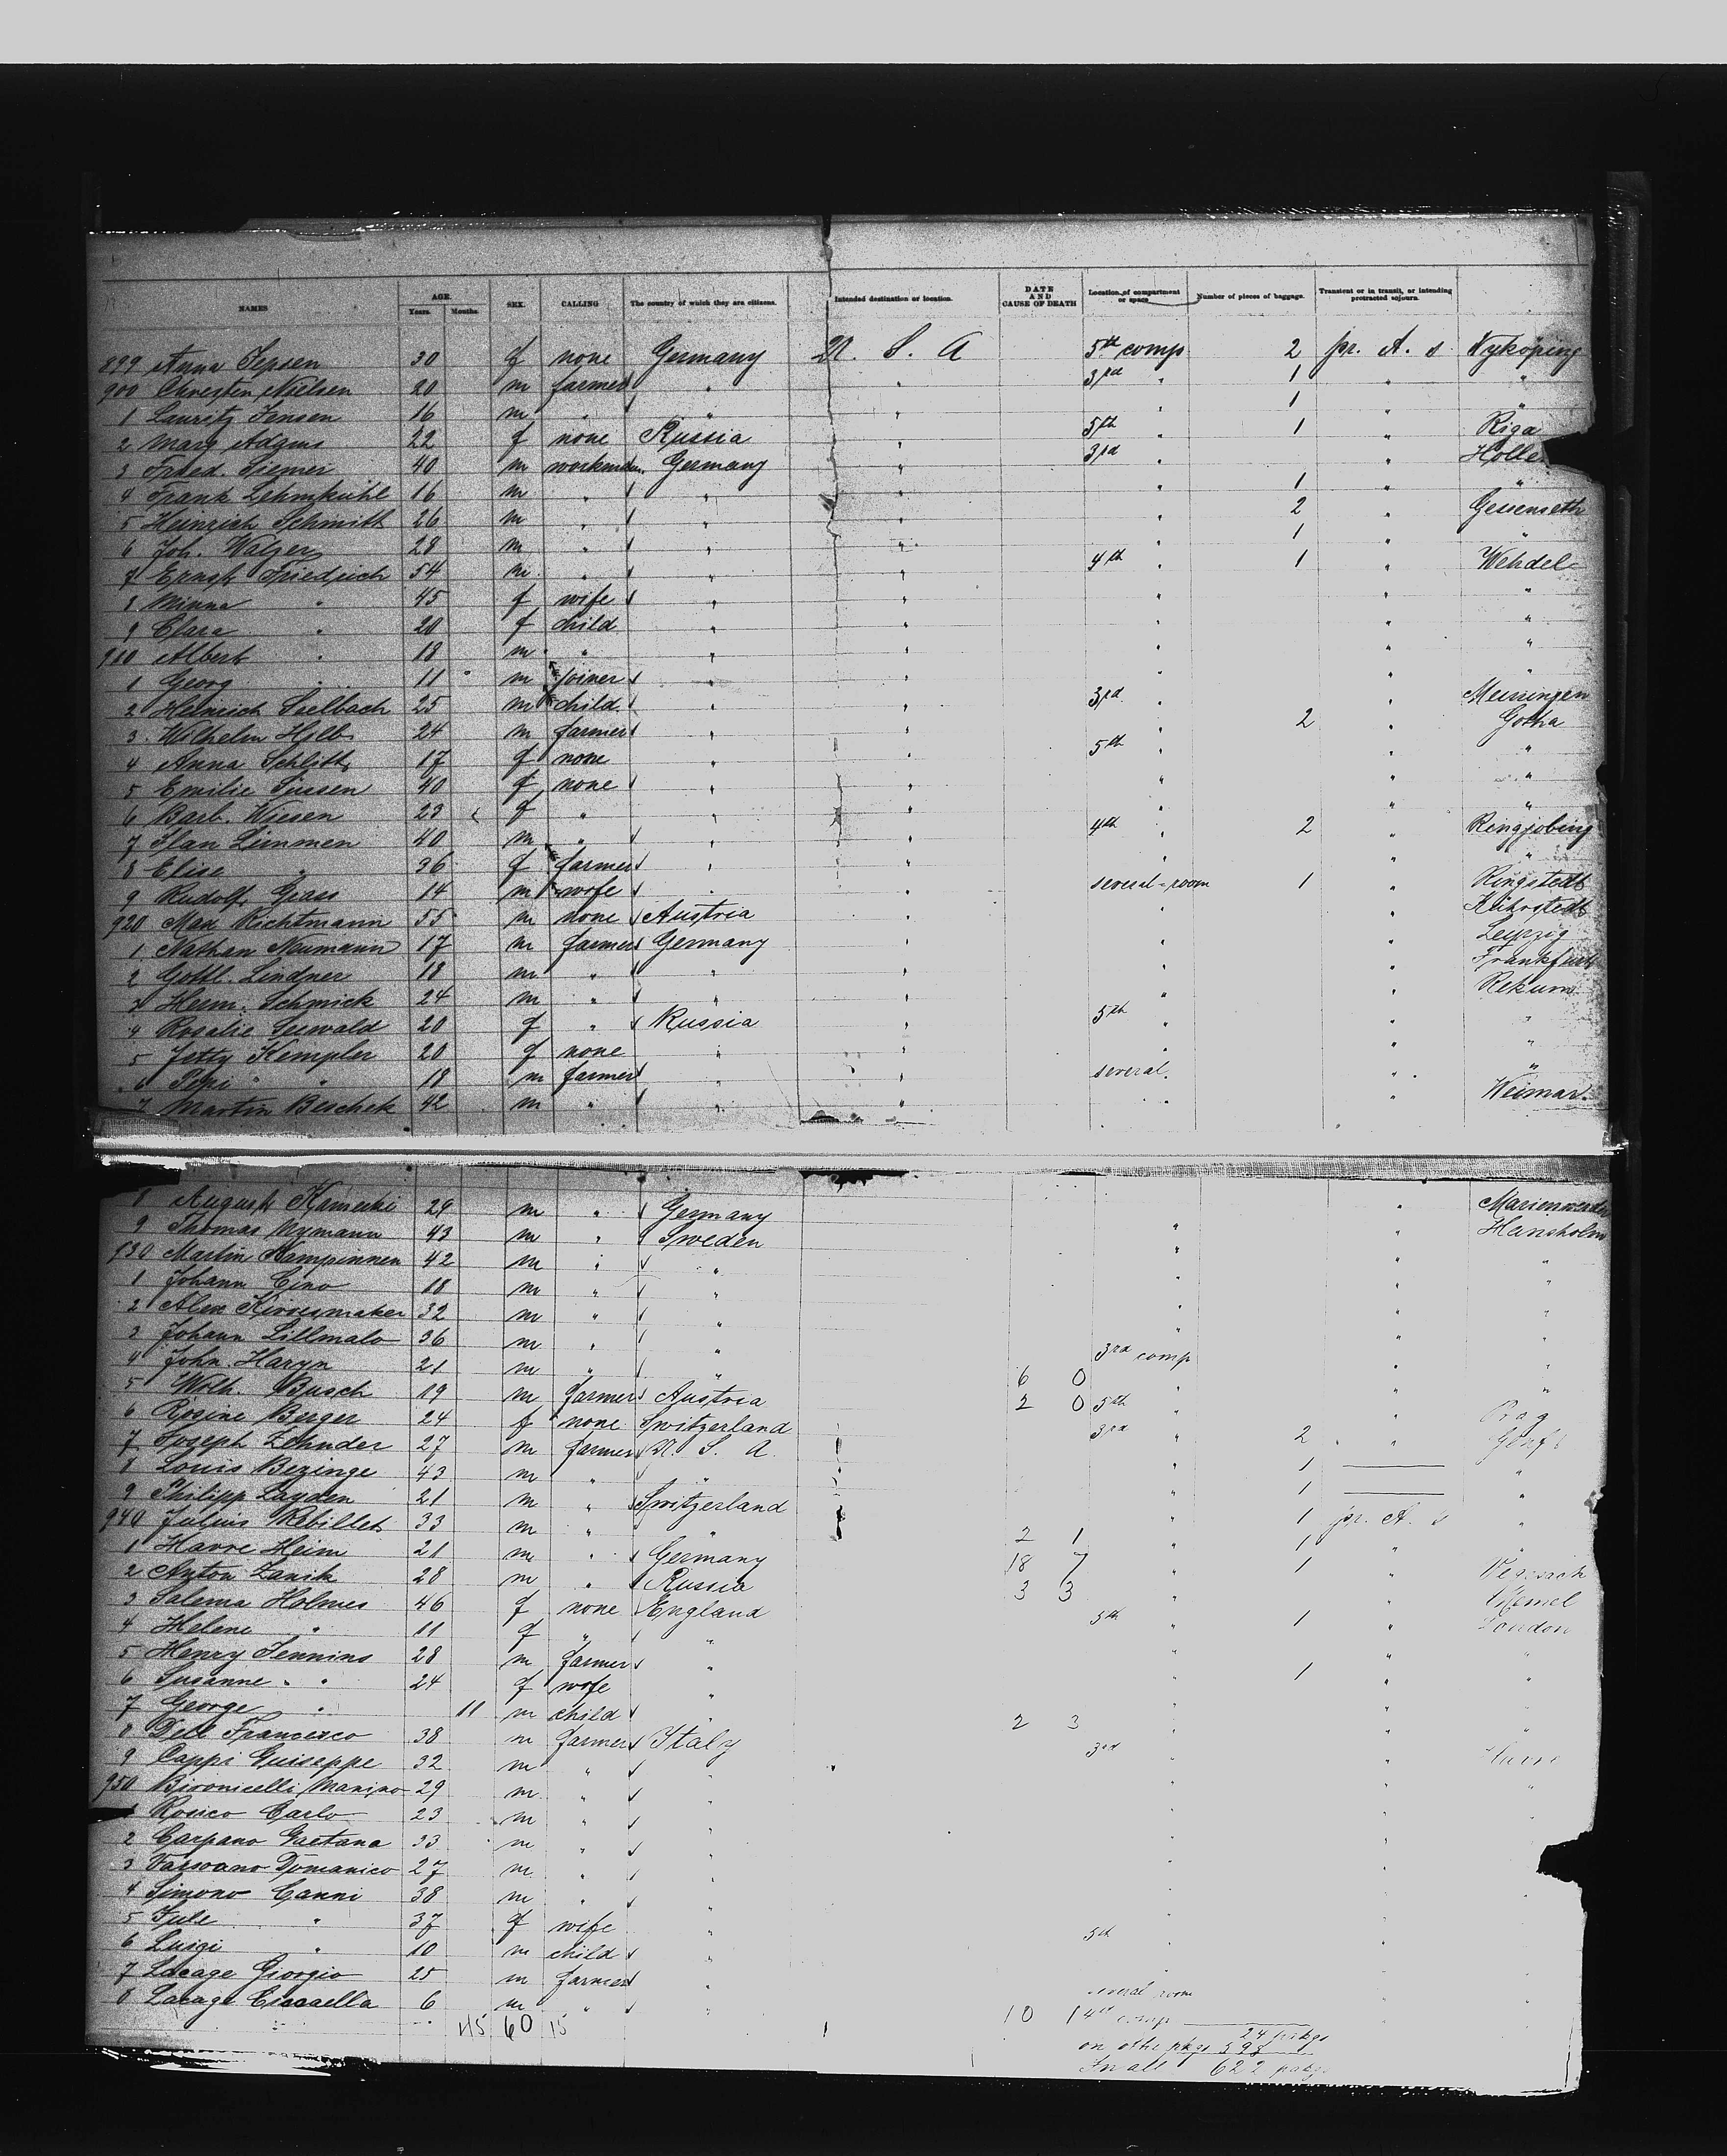 NAMES AGE. SEX. CALLING The country of which they are citizens. Intended destination or location. DATE AND CAUSE OF DEATH Location of compartment or space Number of pieces of baggage. Transient or in transit, or intending protracted sojourn.
Years. Months.
899 Anna Jepsen 30 f none Germany U. S. A 5th comp 2 pr. A. s Nyköping
900 Chresten Nielsen 20 m farmer " " 3rd " 1 " "
1 Lauritz Jensen 16 m " " " " 1 " "
2 Mary Adams 22 f none Russia " 5th " 1 " Riga
3 Fried. Siemer 40 m workman Germany " 3rd " " Holle
4 Frank Lehmkuhl 16 m " " " " 1 " "
5 Heinrich Schmith 26 m " " " " 2 "
6 Joh. Walzer 28 m " " " " 1 " "
7 Friedrich 54 m " " " 4th " 1 " Wehdel
8 Minna " 45 f wife " " " " "
9 Clara " 20 f child " " " " "
910 Albert " 18 m " " " " " "
1 Georg " 11 m joiner " " " " "
2 Heinrich Selbach 25 m child " " 3rd " " Meiningen
3 Wilhelm Hilb 24 m farmer " " " 2 " Gotha
4 Anna Schlitt 17 f none " " 5th " " "
5 Emilie Sussen 40 f none " " " " "
6 Barb. Wiesen 23 f " " " " " "
7 Limmen 40 m " " " 4th " 2 " Ringjobing
8 Elise " 36 f farmer " " " " "
9 Rudolf Grass 14 m wife " " several-room 1 " Ringstedt
920 Max Richtmann 55 m none Austria " " " Kührstedt
1 Nathan Neumann 17 m farmer Germany " " " Leipzig
2 Gottl. Lindner 18 m " " " " " Frankfurt
3 Herm. Schmick 24 m " " " " " Rekum
4 Rosalie Seewald 20 f " Russia " 5th " " "
5 Jetty Kempler 20 f none " " " " "
6 Pepi " 18 m farmer " " several " "
7 Martin Beschek 42 m " " " " " Weimar
8 August Kamecki 29 m " Germany " Marienwerder
9 Thomas Nymann 43 m " Sweden " " Hansholm
930 Martin Kampinnen 42 m " " " " "
1 Johann Cino 18 m " " " " "
2 Alex 32 m " " " " "
3 Johann Lillmalo 36 m " " " " "
4 John Haryn 21 m " " 3rd comp " "
5 Wilh. Busch 19 m farmer Austria 6 0 " " "
6 Rosine Berger 24 f none Switzerland 2 0 5th " " Prag
7 Joseph Zehnder 27 m farmer U. S. A. 3rd " 2 " Genf
8 Louis Bezinge 43 m " " " 1 "
9 Philipp Layden 21 m " Switzerland " 1 "
940 Julius Rebillet 33 m " " " 1 pr. A. s "
1 Havre Heim 21 m " Germany 2 1 " 1 " "
2 Anton Zanik 28 m " Russia 18 7 " 1 " Vegesack
3 Salema Holmes 46 f none England 3 3 " " Memel
4 Helene " 11 f " " 5th " 1 " London
5 Henry Jennins 28 m farmer " " " "
6 Susanne " 24 f wife " " 1 " "
7 George " 11 m child " " " "
8 Dell Francesco 38 m farmer Italy 2 3 " " "
9 Cappi Guiseppe 32 m " " 3rd " " Havre
950 Bironicelli Marino 29 m " " " " "
1 Rosico Carlo 23 m " " " " "
2 Carpano Gaetana 33 m " " " "
3 Domanico 27 m " " " "
4 Simono Canni 38 m " " " "
5 Jule " 37 f wife " " "
6 Luigi " 10 m child " 5th " "
7 Lacage Giorgio 25 m farmer " "
8 Lacage 6 m " " several room
45 60 15 10 1 4th comp 24 pckgs
on othe pkgs 598
In all 622 pckgs